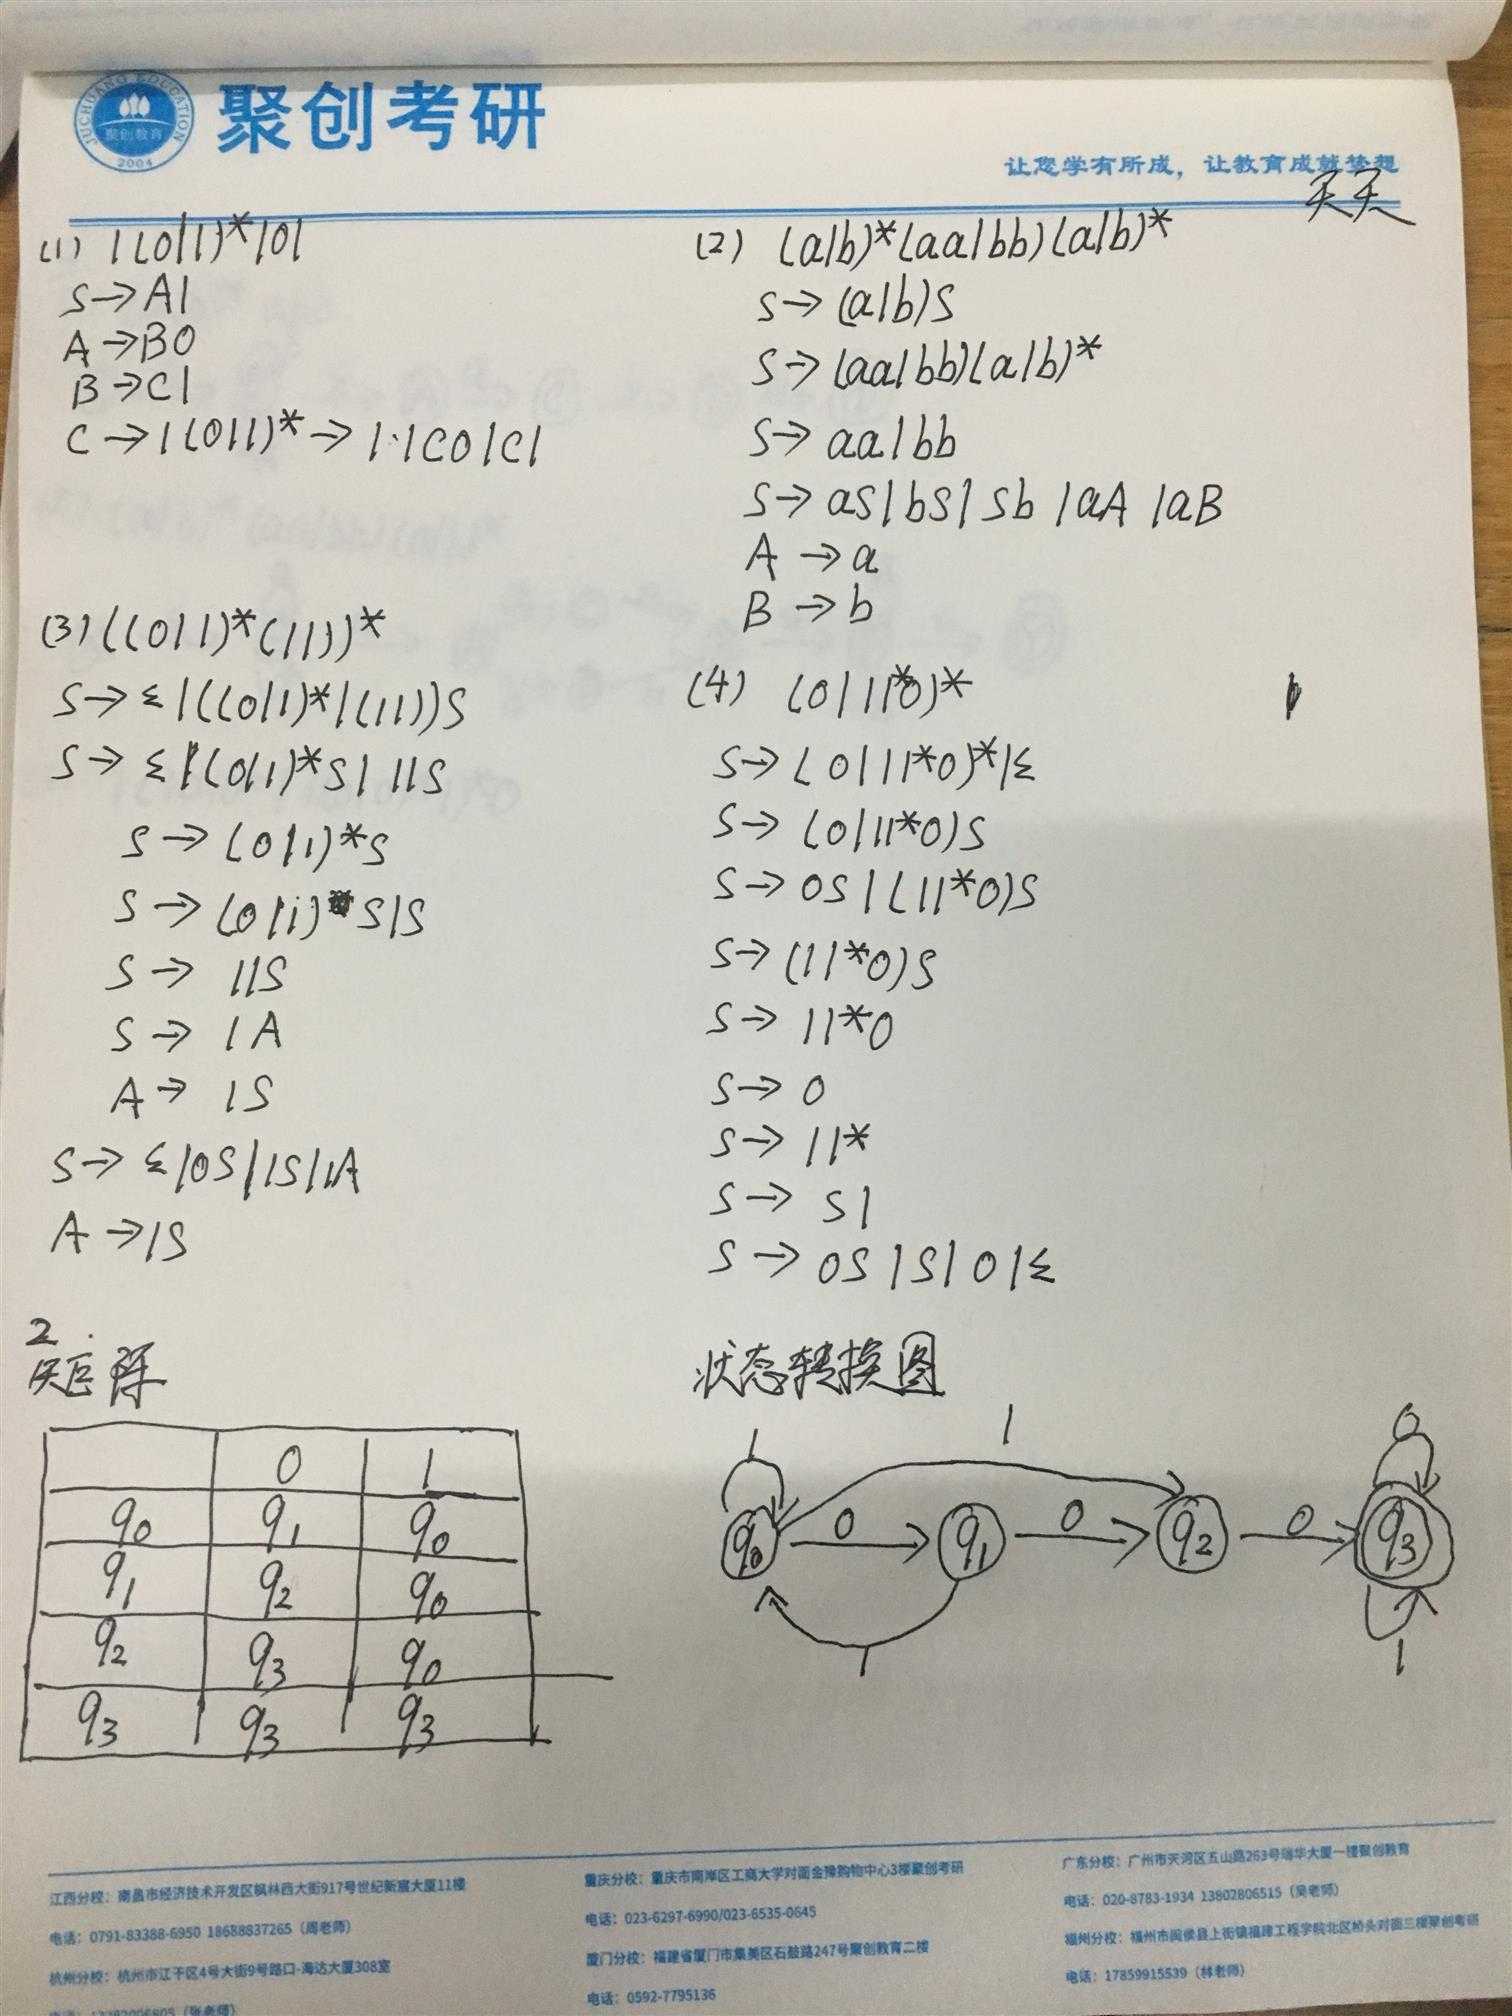 JUCHUANG EDUCATION
聚创教育
2004
聚创考研
让您学有所成，让教育成就梦想
天天
(1) 1(0|1)*101
S→A1
A→B0
B→C1
C→1(0|1)*→1·|C0|C1
(2) (a|b)*(aa|bb)(a|b)*
S→(a|b)S
S→(aa|bb)(a|b)*
S→aa|bb
S→aS|bS|Sb|aA|aB
A→a
B→b
(3)((0|1)*(11))*
S→ε|((0|1)*|(11))S
S→ε|(0|1)*S|11S
S→(0|1)*S
S→(0|1)S|S
S→11S
S→1A
A→1S
S→ε|0S|1S|1A
A→1S
(4) (0|11*0)*
S→(0|11*0)*|ε
S→(0|11*0)S
S→0S|(11*0)S
S→(11*0)S
S→11*0
S→0
S→11*
S→S1
S→0S|S|0|ε
2.
矩阵
0 1
q0 q1 q0
q1 q2 q0
q2 q3 q0
q3 q3 q3
状态转换图
1 1 0
q0 0 q1 0 q2 0 q3
1 1
江西分校：南昌市经济技术开发区枫林西大街917号世纪新宸大厦11楼
电话：0791-83388-6950 18688837265（周老师）
杭州分校：杭州市江干区4号大街9号路口-海达大厦308室
重庆分校：重庆市南岸区工商大学对面金豫购物中心3楼聚创考研
电话：023-6297-6990/023-6535-0645
厦门分校：福建省厦门市集美区石鼓路247号聚创教育二楼
电话：0592-7795136
广东分校：广州市天河区五山路263号瑞华大厦一楼聚创教育
电话：020-8783-1934 13802806515（吴老师）
福州分校：福州市闽侯县上街镇福建工程学院北区桥头对面三楼聚创考研
电话：17859915539（林老师）